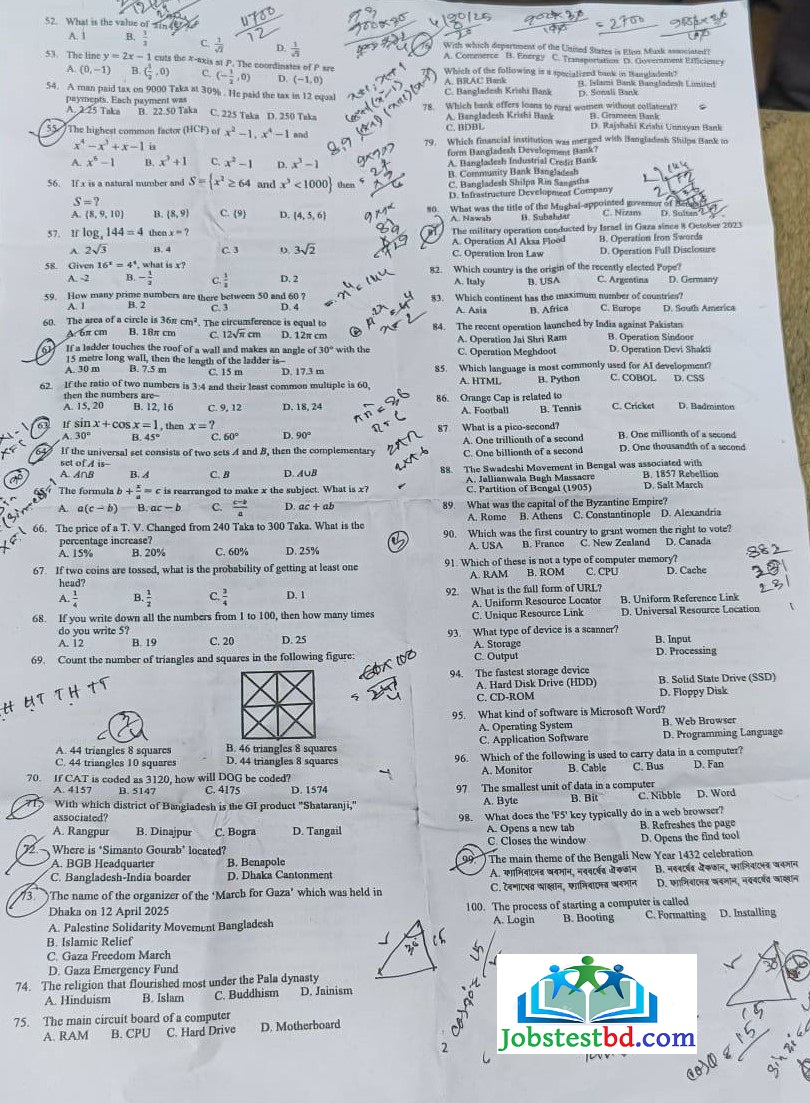 52. What is the value of
A. 1 B. 1/2 C. 1/√2 D. 1/√3
53. The line y = 2x − 1 cuts the x-axis at P. The coordinates of P are
A. (0, −1) B. (1/2, 0) C. (−1/2, 0) D. (−1, 0)
54. A man paid tax on 9000 Taka at 30%. He paid the tax in 12 equal
payments. Each payment was
A. 2.25 Taka B. 22.50 Taka C. 225 Taka D. 250 Taka
55. The highest common factor (HCF) of x² − 1, x⁴ − 1 and
x⁴ − x³ + x − 1 is
A. x⁶ − 1 B. x³ + 1 C. x² − 1 D. x³ − 1
56. If x is a natural number and S = {x² ≥ 64 and x³ < 1000} then
S = ?
A. {8, 9, 10} B. {8, 9} C. {9} D. {4, 5, 6}
57. If logₓ 144 = 4 then x = ?
A. 2√3 B. 4 C. 3 D. 3√2
58. Given 16ˣ = 4⁴, what is x?
A. -2 B. −1/2 C. D. 2
59. How many prime numbers are there between 50 and 60 ?
A. 1 B. 2 C. 3 D. 4
60. The area of a circle is 36π cm². The circumference is equal to
A. 6π cm B. 18π cm C. 12√π cm D. 12π cm
61. If a ladder touches the roof of a wall and makes an angle of 30° with the
15 metre long wall, then the length of the ladder is–
A. 30 m B. 7.5 m C. 15 m D. 17.3 m
62. If the ratio of two numbers is 3:4 and their least common multiple is 60,
then the numbers are–
A. 15, 20 B. 12, 16 C. 9, 12 D. 18, 24
63. If sin x + cos x = 1, then x = ?
A. 30° B. 45° C. 60° D. 90°
64. If the universal set consists of two sets A and B, then the complementary
set of A is–
A. A∩B B. A C. B D. A∪B
The formula b + x/a = c is rearranged to make x the subject. What is x?
A. a(c − b) B. ac − b C. (c−b)/a D. ac + ab
66. The price of a T. V. Changed from 240 Taka to 300 Taka. What is the
percentage increase?
A. 15% B. 20% C. 60% D. 25%
67. If two coins are tossed, what is the probability of getting at least one
head?
A. 1/4 B. 1/2 C. 3/4 D. 1
68. If you write down all the numbers from 1 to 100, then how many times
do you write 5?
A. 12 B. 19 C. 20 D. 25
69. Count the number of triangles and squares in the following figure:
H HT TH TT
A. 44 triangles 8 squares B. 46 triangles 8 squares
C. 44 triangles 10 squares D. 44 triangles 8 squares
70. If CAT is coded as 3120, how will DOG be coded?
A. 4157 B. 5147 C. 4175 D. 1574
71. With which district of Bangladesh is the GI product "Shataranji,"
associated?
A. Rangpur B. Dinajpur C. Bogra D. Tangail
72. Where is 'Simanto Gourab' located?
A. BGB Headquarter B. Benapole
C. Bangladesh-India boarder D. Dhaka Cantonment
73. The name of the organizer of the 'March for Gaza' which was held in
Dhaka on 12 April 2025
A. Palestine Solidarity Movement Bangladesh
B. Islamic Relief
C. Gaza Freedom March
D. Gaza Emergency Fund
74. The religion that flourished most under the Pala dynasty
A. Hinduism B. Islam C. Buddhism D. Jainism
75. The main circuit board of a computer
A. RAM B. CPU C. Hard Drive D. Motherboard
With which department of the United States is Elon Musk associated?
A. Commerce B. Energy C. Transportation D. Government Efficiency
Which of the following is a specialized bank in Bangladesh?
A. BRAC Bank B. Islami Bank Bangladesh Limited
C. Bangladesh Krishi Bank D. Sonali Bank
78. Which bank offers loans to rural women without collateral?
A. Bangladesh Krishi Bank B. Grameen Bank
C. BDBL D. Rajshahi Krishi Unnayan Bank
79. Which financial institution was merged with Bangladesh Shilpa Bank to
form Bangladesh Development Bank?
A. Bangladesh Industrial Credit Bank
B. Community Bank Bangladesh
C. Bangladesh Shilpa Rin Sangstha
D. Infrastructure Development Company
80. What was the title of the Mughal-appointed governor of
A. Nawab B. Subahdar C. Nizam D. Sultan
The military operation conducted by Israel in Gaza since 8 October 2023
A. Operation Al Aksa Flood B. Operation Iron Swords
C. Operation Iron Law D. Operation Full Disclosure
82. Which country is the origin of the recently elected Pope?
A. Italy B. USA C. Argentina D. Germany
83. Which continent has the maximum number of countries?
A. Asia B. Africa C. Europe D. South America
84. The recent operation launched by India against Pakistan
A. Operation Jai Shri Ram B. Operation Sindoor
C. Operation Meghdoot D. Operation Devi Shakti
85. Which language is most commonly used for AI development?
A. HTML B. Python C. COBOL D. CSS
86. Orange Cap is related to
A. Football B. Tennis C. Cricket D. Badminton
87 What is a pico-second?
A. One trillionth of a second B. One millionth of a second
C. One billionth of a second D. One thousandth of a second
88. The Swadeshi Movement in Bengal was associated with
A. Jallianwala Bagh Massacre B. 1857 Rebellion
C. Partition of Bengal (1905) D. Salt March
89. What was the capital of the Byzantine Empire?
A. Rome B. Athens C. Constantinople D. Alexandria
90. Which was the first country to grant women the right to vote?
A. USA B. France C. New Zealand D. Canada
91. Which of these is not a type of computer memory?
A. RAM B. ROM C. CPU D. Cache
92. What is the full form of URL?
A. Uniform Resource Locator B. Uniform Reference Link
C. Unique Resource Link D. Universal Resource Location
93. What type of device is a scanner?
A. Storage B. Input
C. Output D. Processing
94. The fastest storage device
A. Hard Disk Drive (HDD) B. Solid State Drive (SSD)
C. CD-ROM D. Floppy Disk
95. What kind of software is Microsoft Word?
A. Operating System B. Web Browser
C. Application Software D. Programming Language
96. Which of the following is used to carry data in a computer?
A. Monitor B. Cable C. Bus D. Fan
97 The smallest unit of data in a computer
A. Byte B. Bit C. Nibble D. Word
98. What does the 'F5' key typically do in a web browser?
A. Opens a new tab B. Refreshes the page
C. Closes the window D. Opens the find tool
99. The main theme of the Bengali New Year 1432 celebration
A. ফ্যাসিবাদের অবসান, নববর্ষের ঐকতান B. নববর্ষের ঐকতান, ফ্যাসিবাদের অবসান
C. বৈশাখের আহ্বান, ফ্যাসিবাদের অবসান D. ফ্যাসিবাদের অবসান, নববর্ষের আহ্বান
100. The process of starting a computer is called
A. Login B. Booting C. Formatting D. Installing
Jobstestbd.com